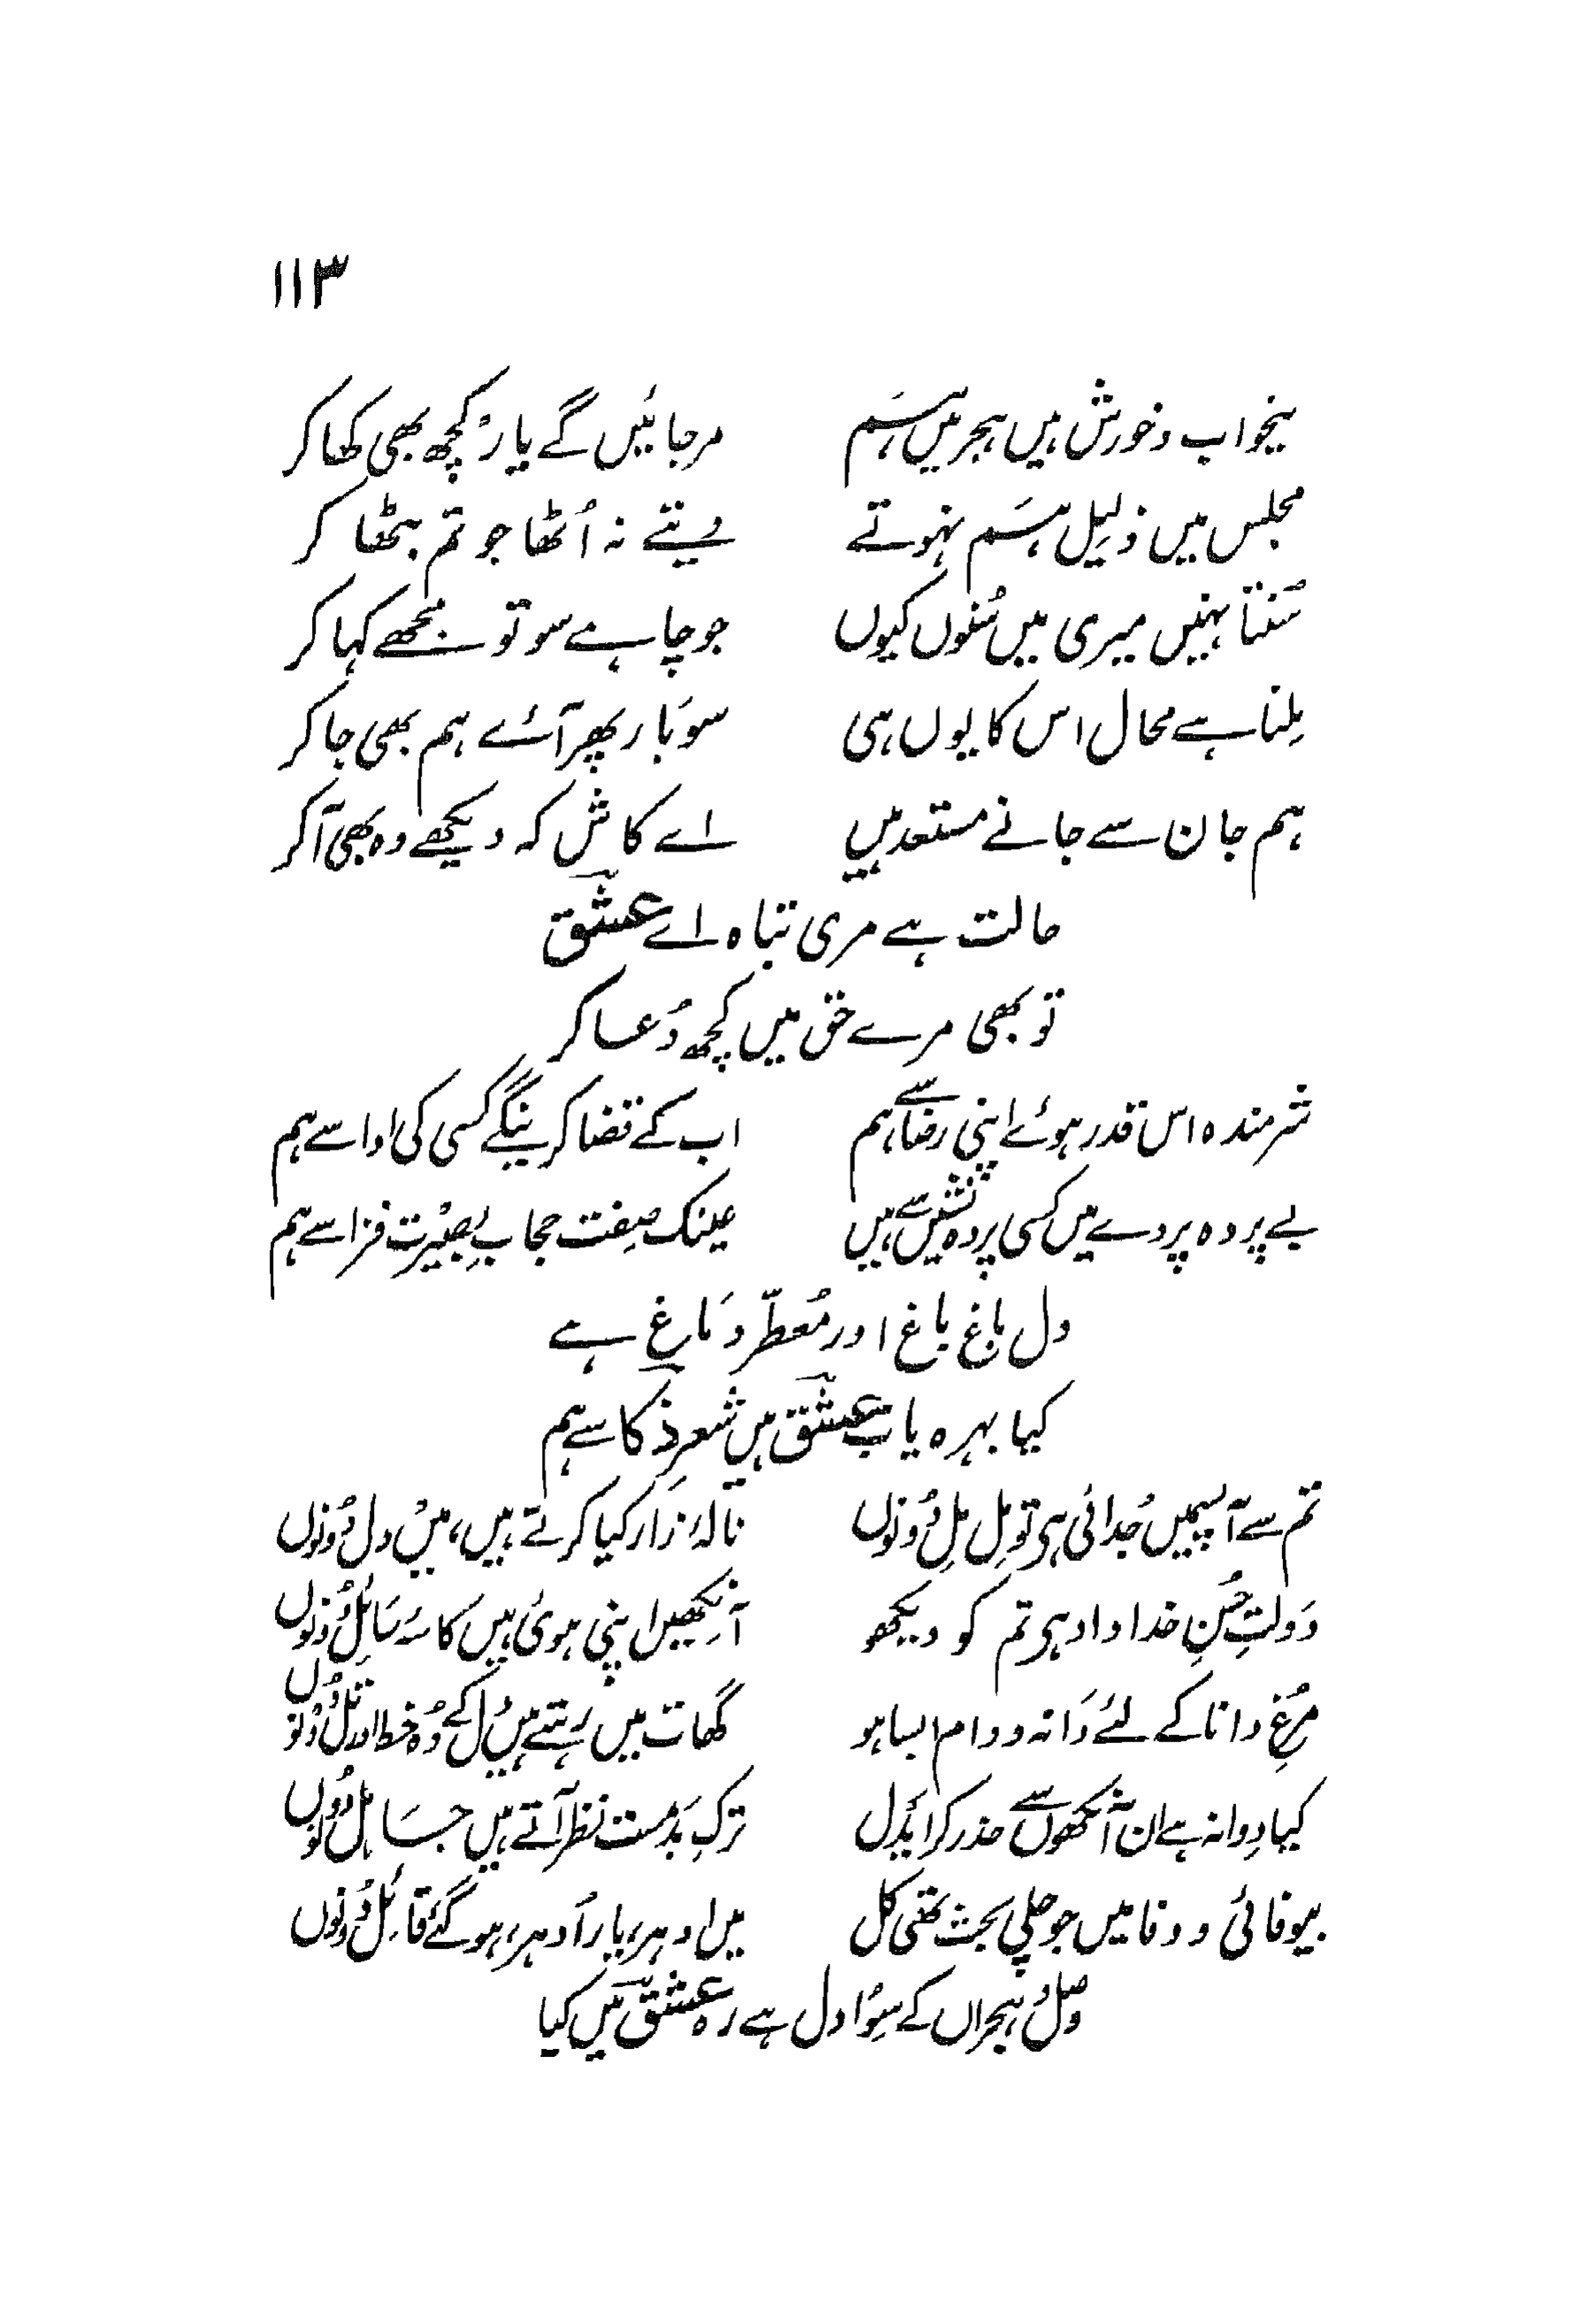 ۱۱۳
بیخواب وخورش ہیں ہجر میں ہم مرجائیں گے یار کچھ بھی کھا کر
مجلس میں ذلیل ہم نہوتے دیتے نہ اُٹھا جو تم بٹھا کر
سُنتا نہیں میری میں سُنوں کیوں جو چاہے سو تو مجھے کہا کر
مِلنا ہے محال اس کا یوں ہی سو بار پھر آئے ہم بھی جا کر
ہم جان سے جانے مستعد ہیں اے کاش کہ دیکھے وہ بھی آ کر
حالت ہے مری تباہ اے عشق
تو بھی مرے حق میں کچھ دُعا کر
شرمندہ اس قدر ہوئے اپنی رضا سے ہم اب کے قضا کرینگے کسی کی ادا سے ہم
بے پردہ پردے میں کسی پردہ نشیں سے ہیں عینک صِفت حجابِ بصیْرت فزا سے ہم
دل باغ باغ اور مُعطّر دَماغ ہے
کیا بہرہ یاب عشق ہیں شعرِ ذکا سے ہم
تم سے آپسمیں جُدائی ہی تو مِل مِل دُونوں نالۂ زار کیا کرتے ہیں، میں دل دُونوں
دَولتِ حُسنِ خدا داد ہی تم کو دیکھو آنکھیں اپنی ہوئی ہیں کاسۂ سَائِل دُونوں
مُرغِ دانا کے لئے دَانہ و دام ایسا ہو گھات میں رہتے ہیں دل کے وُہ خط اور تِل دُونوں
کیا دِوانہ ہے ان آنکھوں سے حذر کر ایدل ترکِ بدمست نظر آتے ہیں جسَاہل دُونوں
بیوفائی و وفا میں جو چلی بحث تھی کل میں ادہر، یار اُدہر، ہو گئے قائِل دُونوں
وصل و ہجراں کے سِوُا دل ہے رہ عشق میں کیا